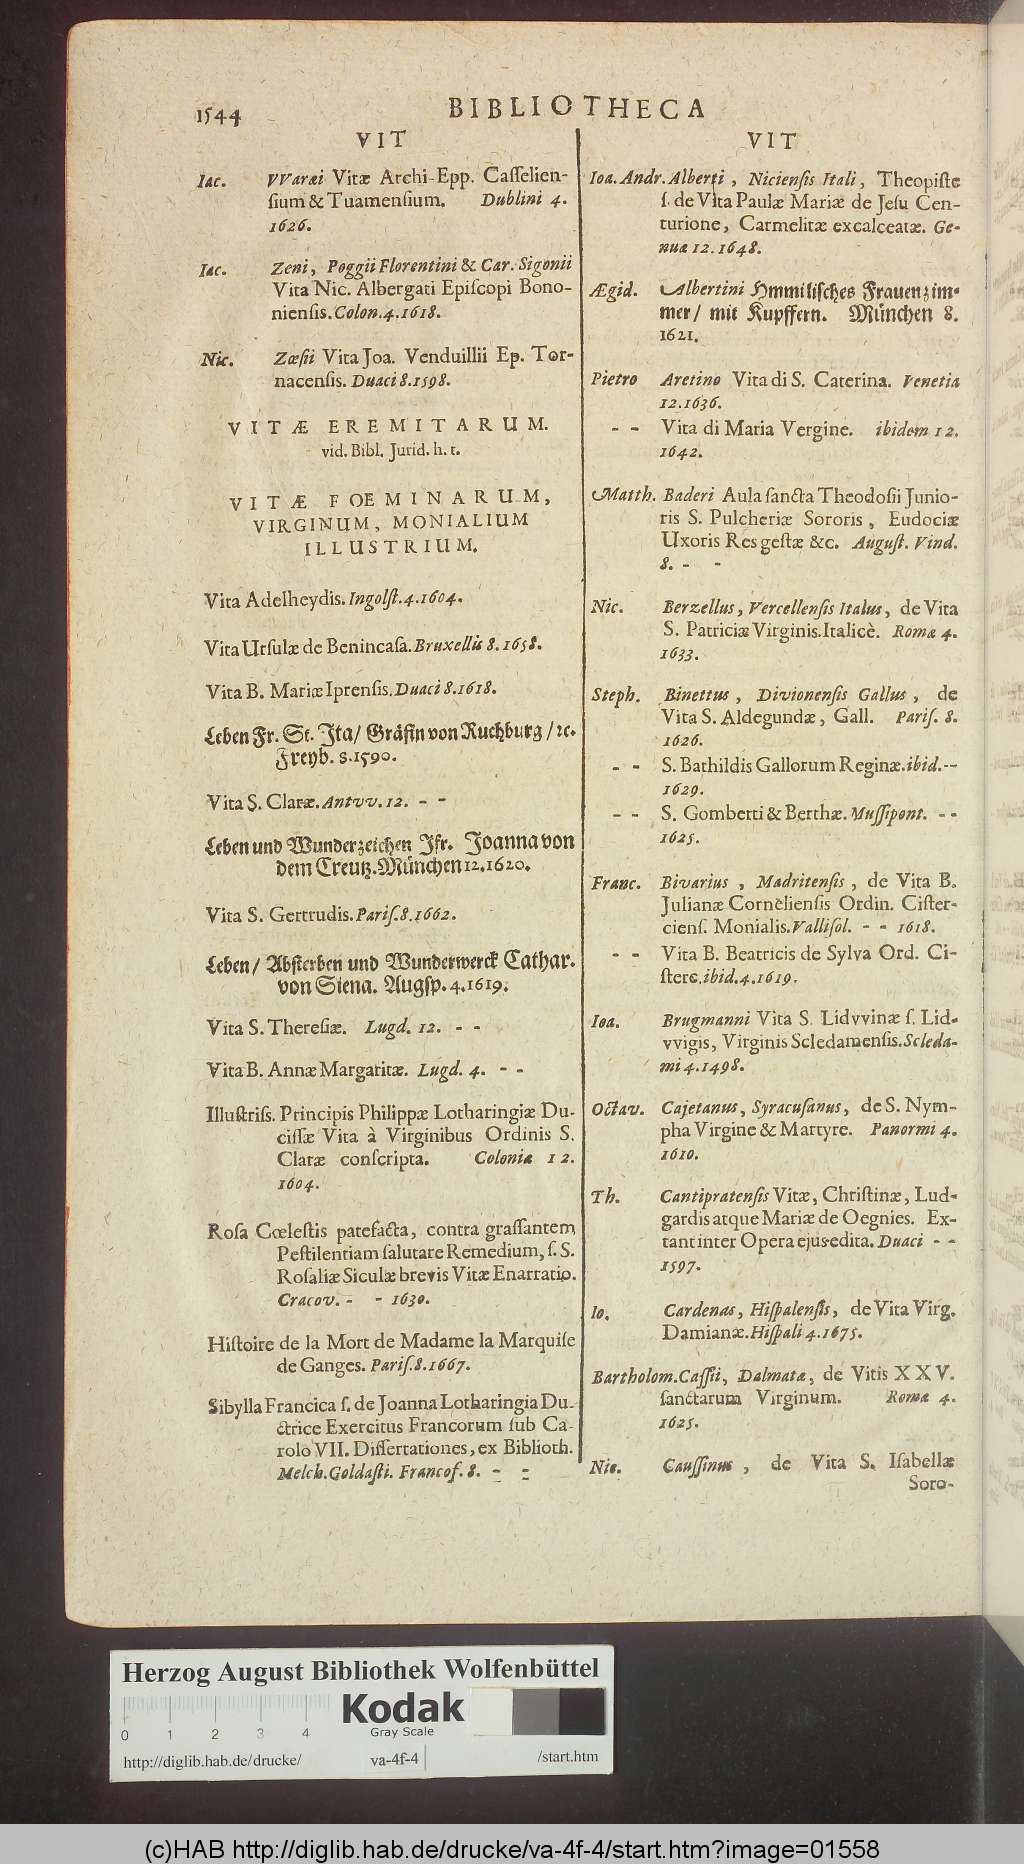 1544
BIBLIOTHECA
VIT
Iac. VVaræi Vitæ Archi-Epp. Caſſelien-
ſium & Tuamenſium. Dublini 4.
1626.
Iac. Zeni, Poggii Florentini & Car. Sigonii
Vita Nic. Albergati Epiſcopi Bono-
nienſis. Colon. 4. 1618.
Nic. Zœſii Vita Joa. Venduillii Ep. Tor-
nacenſis. Duaci 8. 1598.
VITÆ EREMITARUM.
vid. Bibl. Jurid. h. t.
VITÆ FOEMINARUM,
VIRGINUM, MONIALIUM
ILLUSTRIUM.
Vita Adelheydis. Ingolſt. 4. 1604.
Vita Urſulæ de Benincaſa. Bruxellis 8. 1658.
Vita B. Mariæ Iprenſis. Duaci 8. 1618.
Leben Fr. St. Jta/ Gräfin von Kuchburg/ ꝛc.
Freyb. 8. 1590.
Vita S. Claræ. Antvv. 12. - -
Leben und Wunderzeichen Jfr. Joanna von
dem Creutz. München 12. 1620.
Vita S. Gertrudis. Pariſ. 8. 1662.
Leben/ Abſterben und Wunderwerck Cathar.
von Siena. Augſp. 4. 1619.
Vita S. Thereſiæ. Lugd. 12. - -
Vita B. Annæ Margaritæ. Lugd. 4. - -
Illuſtriſs. Principis Philippæ Lotharingiæ Du-
ciſſæ Vita à Virginibus Ordinis S.
Claræ conſcripta. Coloniæ 12.
1604.
Roſa Cœleſtis patefacta, contra graſſantem
Peſtilentiam ſalutare Remedium, ſ. S.
Roſaliæ Siculæ brevis Vitæ Enarratio.
Cracov. - - 1630.
Hiſtoire de la Mort de Madame la Marquiſe
de Ganges. Pariſ. 8. 1667.
Sibylla Francica ſ. de Joanna Lotharingia Du-
ctrice Exercitus Francorum ſub Ca-
rolo VII. Diſſertationes, ex Biblioth.
Melch. Goldaſti. Francof. 8. - -
VIT
Ioa. Andr. Alberti, Nicienſis Itali, Theopiſte
ſ. de Vita Paulæ Mariæ de Jeſu Cen-
turione, Carmelitæ excalceatæ. Ge-
nuæ 12. 1648.
Ægid. Albertini Hmmiliſches Frauenzim-
mer/ mit Kupffern. München 8.
1621.
Pietro Aretino Vita di S. Caterina. Venetia
12. 1636.
- - Vita di Maria Vergine. ibidem 12.
1642.
Matth. Baderi Aula ſancta Theodoſii Junio-
ris S. Pulcheriæ Sororis, Eudociæ
Uxoris Res geſtæ &c. Auguſt. Vind.
8. - -
Nic. Berzellus, Vercellenſis Italus, de Vita
S. Patriciæ Virginis. Italicè. Romæ 4.
1633.
Steph. Binettus, Divionenſis Gallus, de
Vita S. Aldegundæ, Gall. Pariſ. 8.
1626.
- - S. Bathildis Gallorum Reginæ. ibid. - -
1629.
- - S. Gomberti & Berthæ. Muſſipont. - -
1625.
Franc. Bivarius, Madritenſis, de Vita B.
Julianæ Cornelienſis Ordin. Ciſter-
cienſ. Monialis. Valliſol. - - 1618.
- - Vita B. Beatricis de Sylva Ord. Ci-
ſterc. ibid. 4. 1619.
Ioa. Brugmanni Vita S. Lidvvinæ ſ. Lid-
vvigis, Virginis Scledamenſis. Scleda-
mi 4. 1498.
Octav. Cajetanus, Syracuſanus, de S. Nym-
pha Virgine & Martyre. Panormi 4.
1610.
Th. Cantipratenſis Vitæ, Chriſtinæ, Lud-
gardis atque Mariæ de Oegnies. Ex-
tant inter Opera ejus edita. Duaci - -
1597.
Io. Cardenas, Hiſpalenſis, de Vita Virg.
Damianæ. Hiſpali 4. 1675.
Bartholom. Caſſii, Dalmata, de Vitis XXV.
ſanctarum Virginum. Romæ 4.
1625.
Nic. Cauſſinus, de Vita S. Iſabellæ
Soro-
Herzog August Bibliothek Wolfenbüttel
Kodak
Gray Scale
0 1 2 3 4
http://diglib.hab.de/drucke/ va-4f-4 /start.htm
(c)HAB http://diglib.hab.de/drucke/va-4f-4/start.htm?image=01558